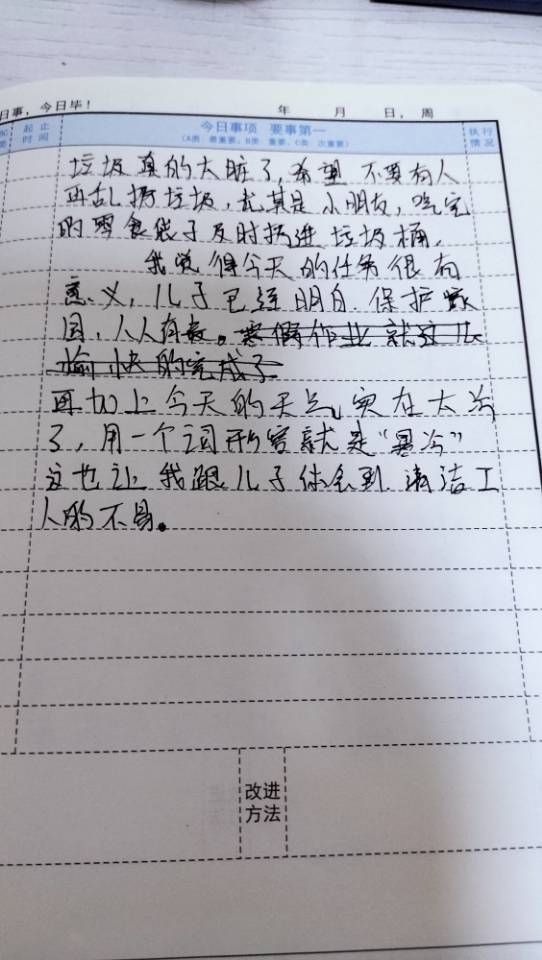 日事，今日毕！ 年 月 日，周
起止时间 今日事项 要事第一 执行情况
(A类 最重要，B类 重要，C类 次重要)
垃圾真的太脏了，希望不要有人
再乱扔垃圾，尤其是小朋友，吃完
的零食袋子及时扔进垃圾桶，
我觉得今天的任务很有
意义，儿子已经明白保护家
园，人人有责。寒假作业就这么
愉快的完成了
再加上今天的天气实在太冷
了，用一个词形容就是“暴冷”
这也让我跟儿子体会到清洁工
人的不易。
改进
方法